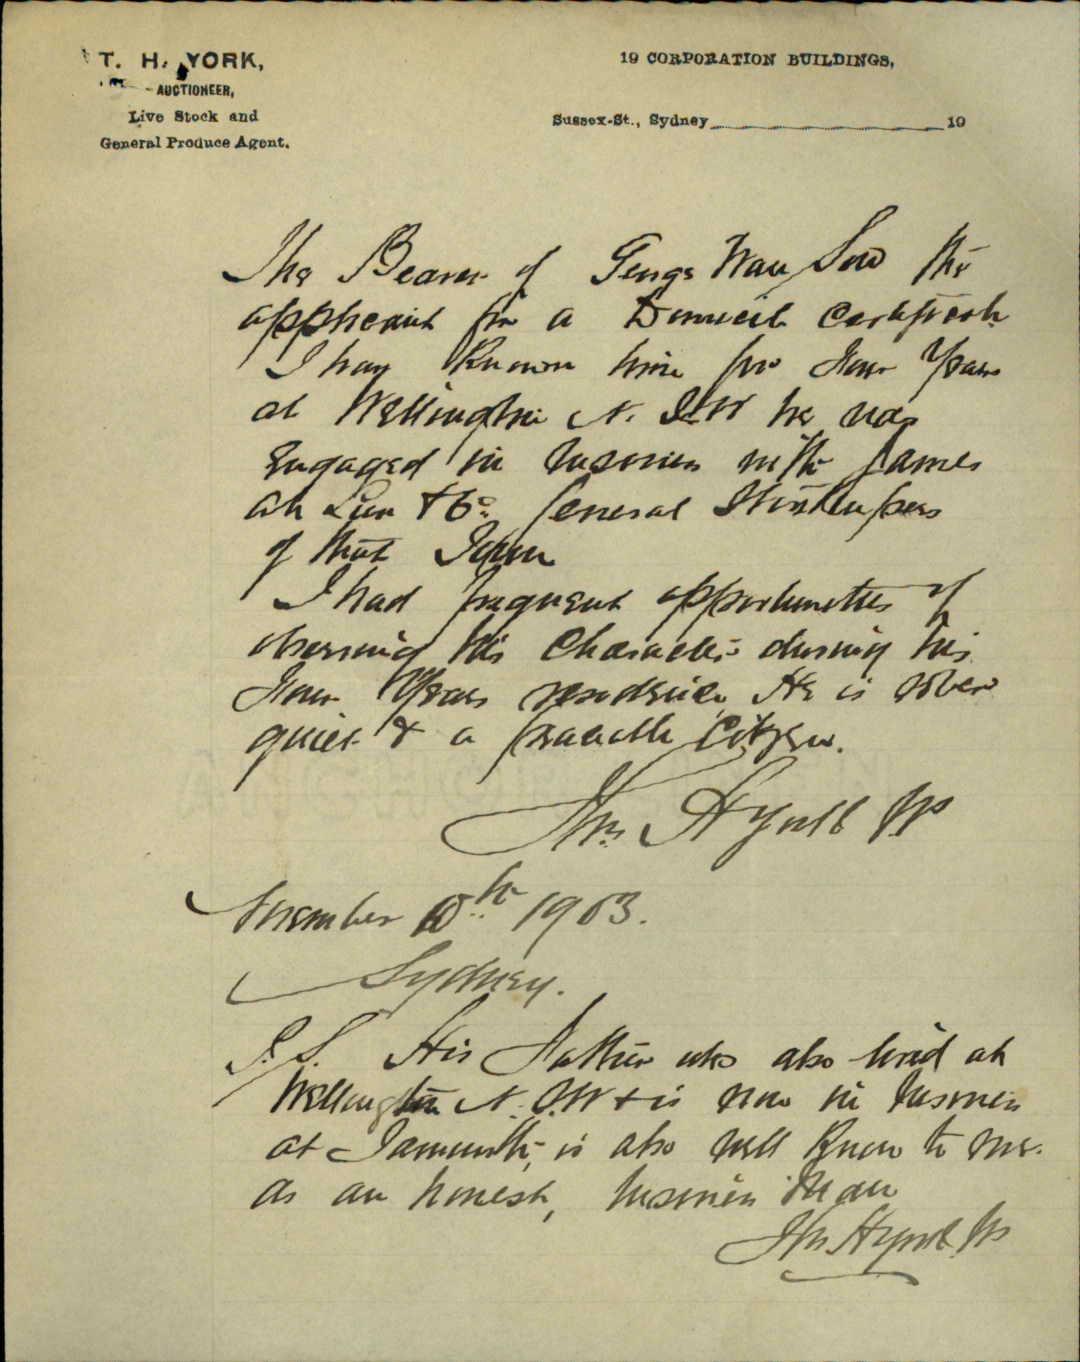 T. H. YORK,
AUCTIONEER,
Live Stock and
General Produce Agent.
19 CORPORATION BUILDINGS,
Sussex-St., Sydney 19
The Bearer of George Way Sow the
applicant for a Domicile Certificate
I have Known him for four Years
at Wellington N. S.W he was
Engaged in business with James
Ah Lun & Co. General Storekeepers
of that Town
I had frequent opportunities of
observing his Character during his
four Years residence He is sober
quiet & a peaceable Citizen.
Thos H York JP
November 10th 1903.
Sydney.
P.S. His Father who also lived at
Wellington N.S.W & is now in business
at Tamworth, is also well Know to me.
As an honest, business Man
Thos H York JP